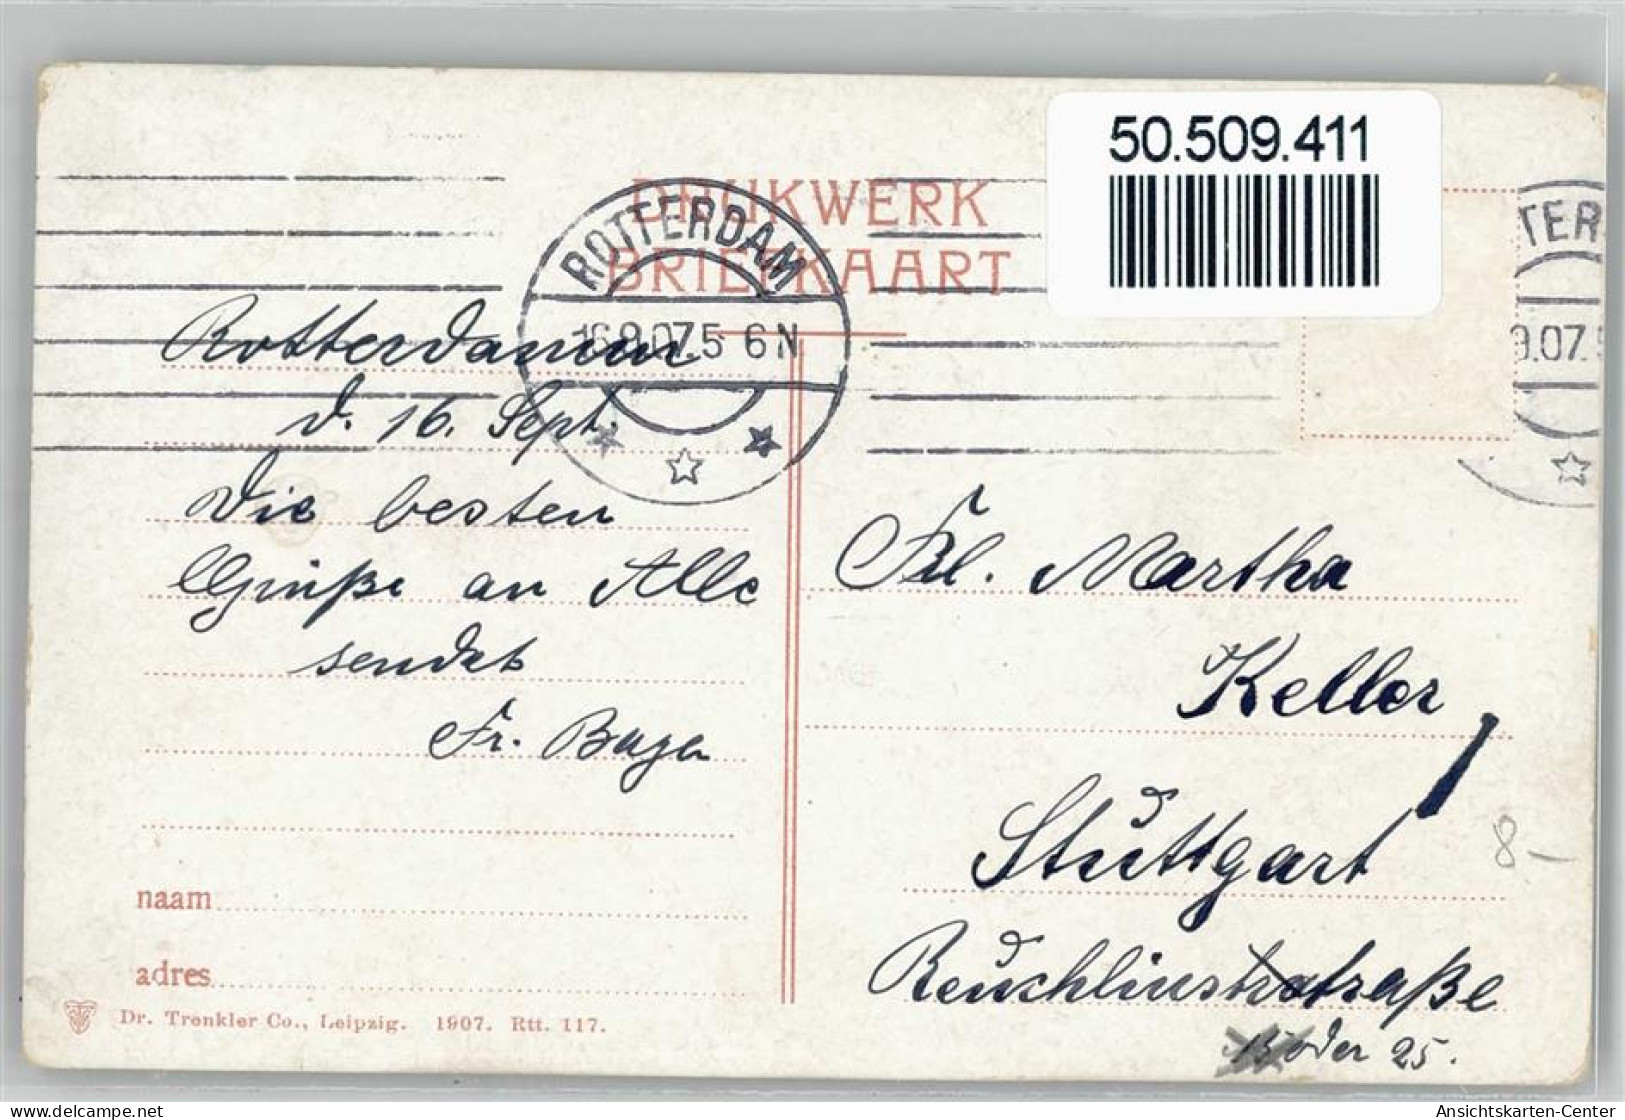 50.509.411
DRUKWERK
BRIEFKAART
ROTTERDAM
16.9.07.5 6 N
TER
9.07.5
Rotterdam
d. 16. Sept.
Die besten
Grüße an Alle
sendet
Fr.
Frl. Martha
Keller
Stuttgart
Reuchlinstraße
15 oder 25.
naam
adres
Dr. Trenkler Co., Leipzig. 1907. Rtt. 117.
8.-
Ansichtskarten-Center
www.delcampe.net